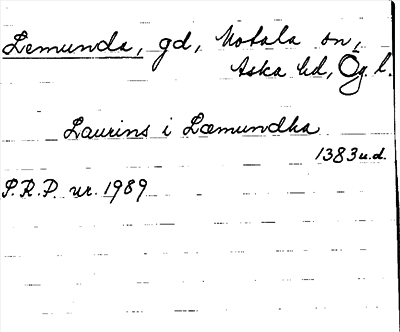 Lemunda, gd, Motala sn,
Aska hd, Ög. l.
Laurins i Læmundha
1383 u.d.
S.R.P. nr. 1989